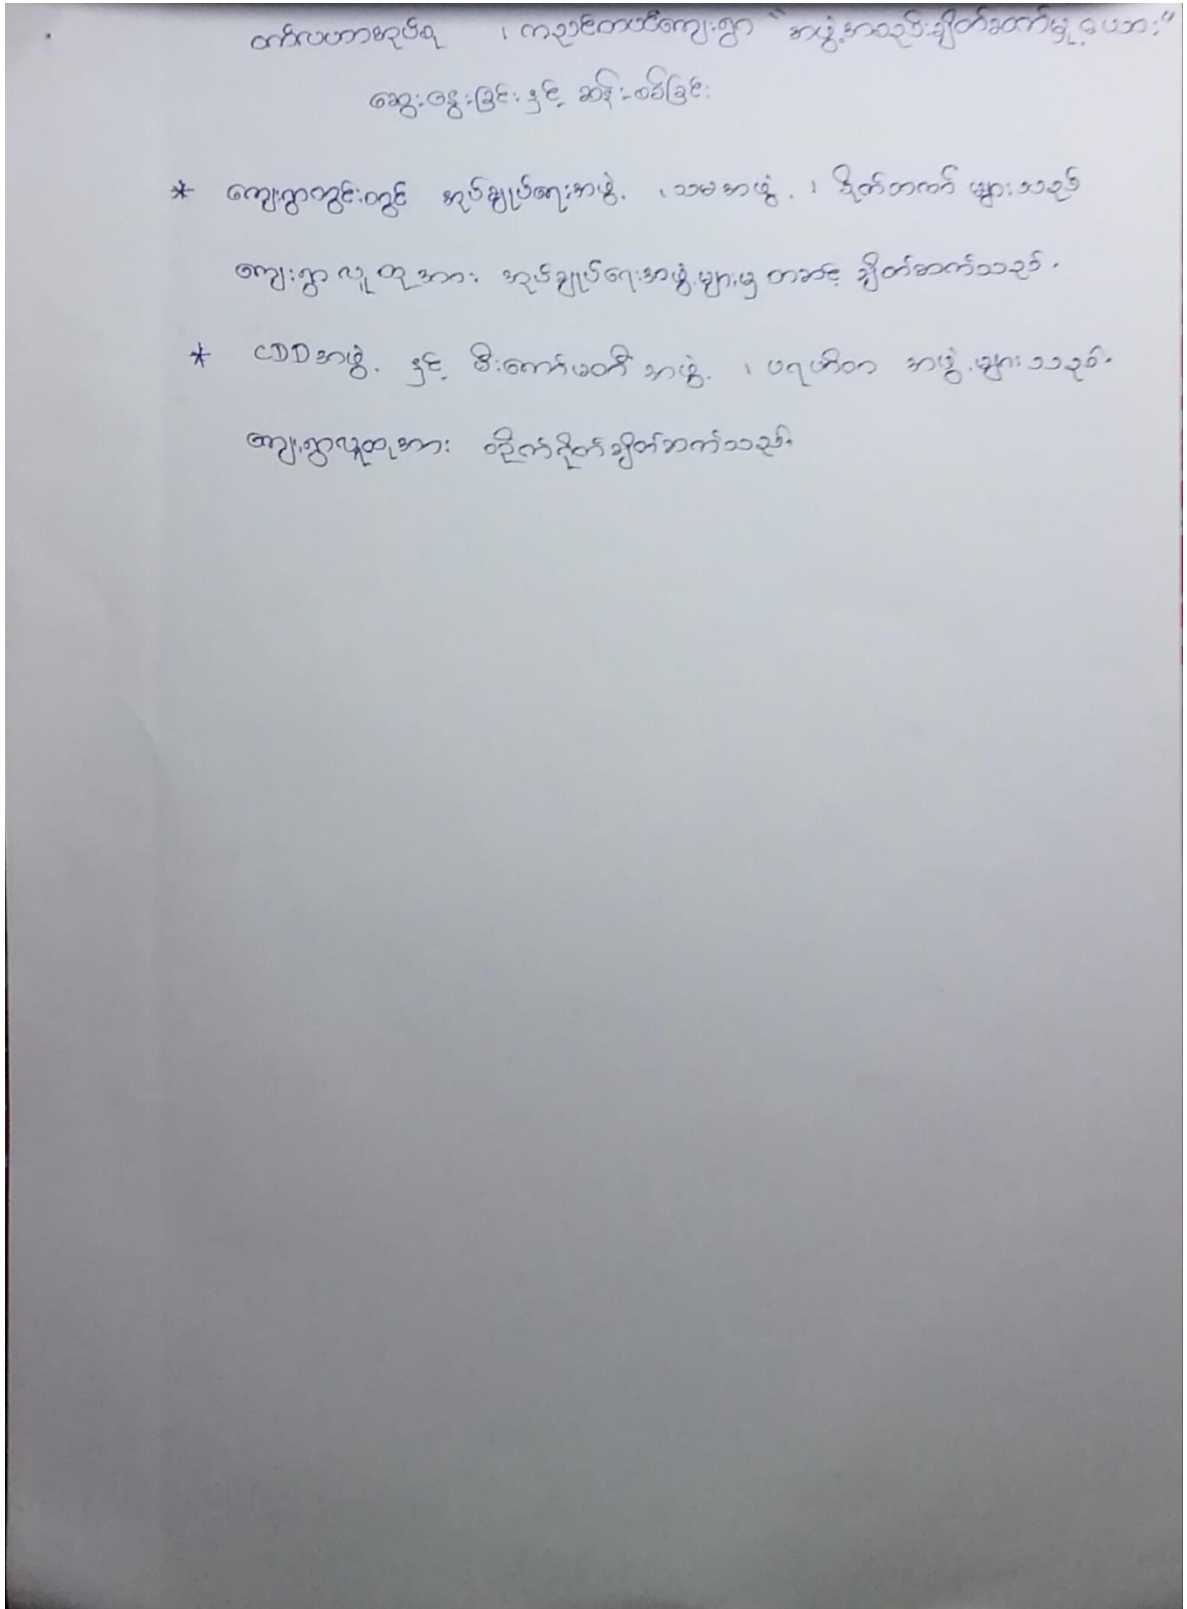 တက်လဟာအုပ်စု ၊ ကညင်တပင်ကျေးရွာ "အဖွဲ့အစည်းချိတ်ဆက်မှု့ ဗေယား"
ဆွေးနွေးခြင်း နှင့် ဆန်းစစ်ခြင်း
* ကျေးရွာတွင်းတွင် အုပ်ချုပ်ရေးအဖွဲ့ ၊ သမအဖွဲ့ ၊ ရိုက်တာဏ် များသည်
ကျေးရွာ လူထုအား အုပ်ချုပ်ရေးအဖွဲ့များမှ တဆင့် ချိတ်ဆက်သည်။
* CDDအဖွဲ့ နှင့် မီးကော်မတီ အဖွဲ့ ၊ ပရဟိတ အဖွဲ့များသည်
ကျေးရွာလူထုအား တိုက်ရိုက်ချိတ်ဆက်သည်။